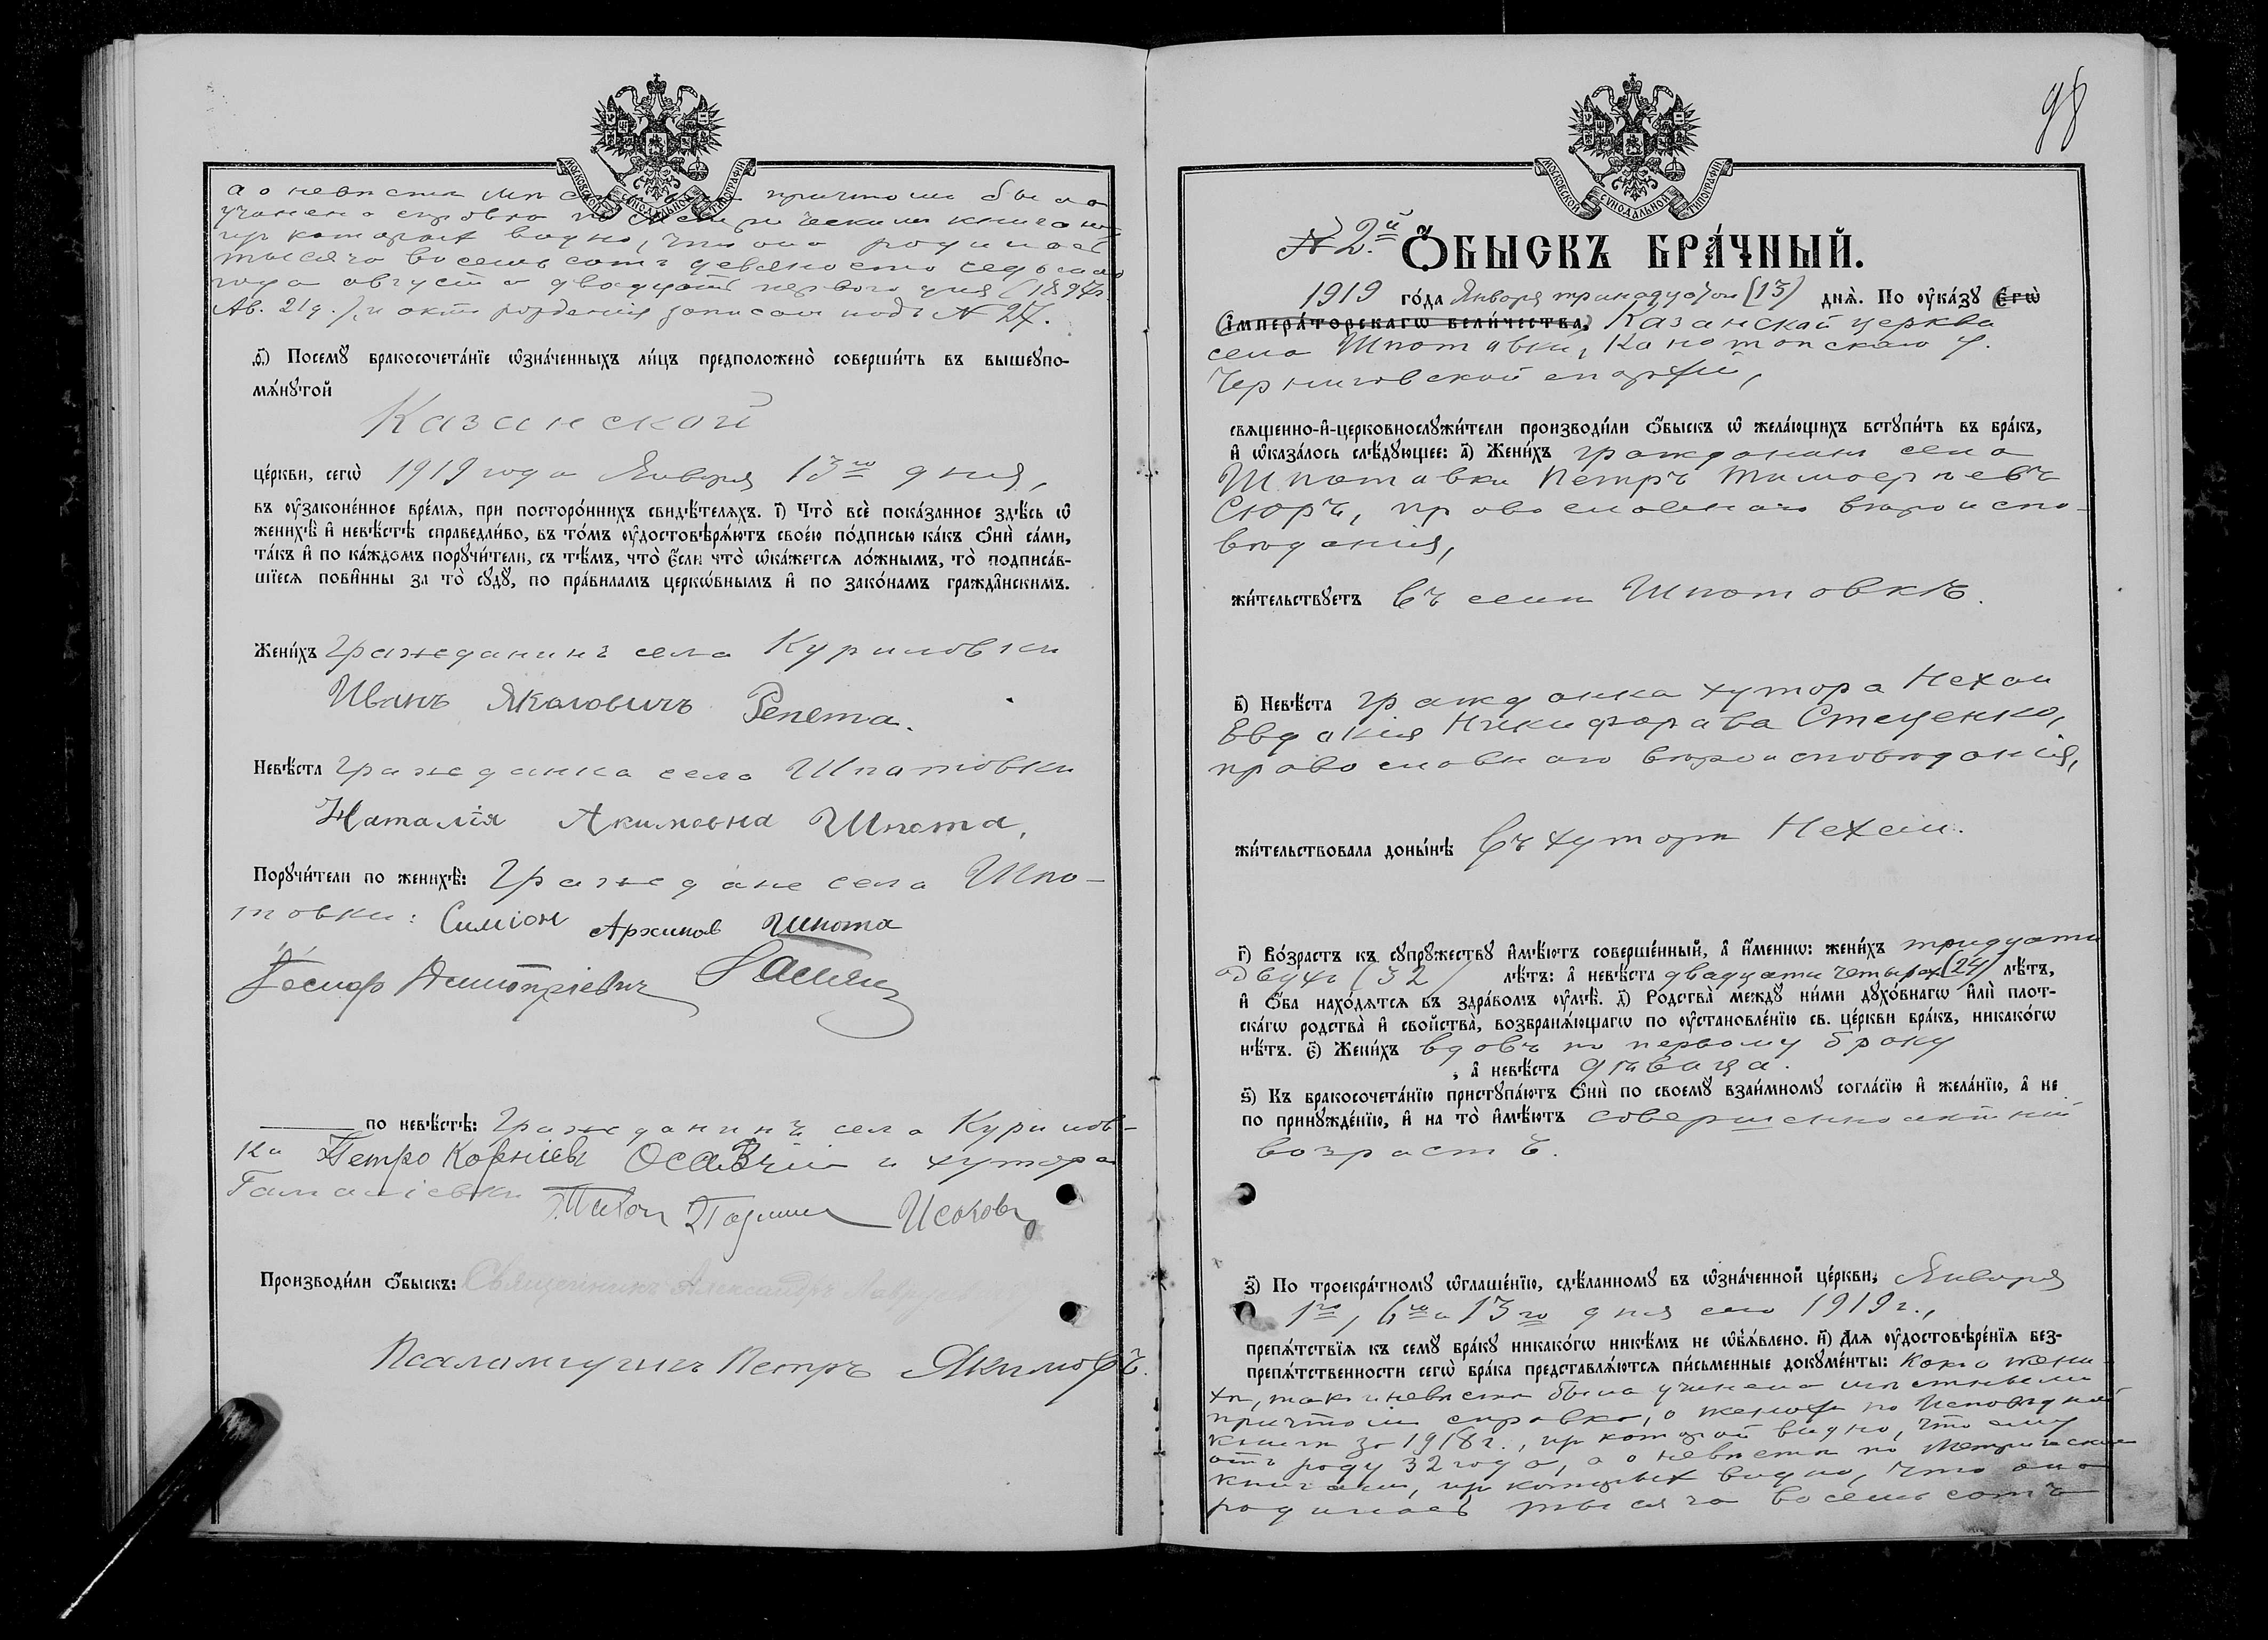 МОСКОВСКОЙ СѴНОДАЛЬНОЙ ТИПОГРАФІИ
а о невѣстѣ причтомъ было
учинена справка по Метрическимъ книгамъ
изъ которыхъ видно, что она родилась
тысяча восемьсотъ девяносто седьмого
года августа двадцать перваго дня (1897г.
Ав. 21д.), и актъ рожденія записанъ подъ № 27.
ѳ҃) Посемꙋ̀ бракосочета́нїе ѡ҆зна́ченныхъ ли́цъ предположено̀ соверши́ть въ вышеꙋпо-
мѧ́нꙋтой
Казанской
це́ркви, сегѡ̀ 1919 года Января 13го дня,
въ ᲂу҆зако́ненное вре́мѧ, при посторо́ннихъ свидѣ́телѧхъ. і҃) Что̀ всѐ пока́занное здѣ́сь ѡ҆
женихѣ̀ и҆ невѣ́стѣ справедли́во, въ то́мъ ᲂу҆достовѣрѧ́ютъ свое́ю по́дписью ка́къ ѻ҆нѝ са́ми,
та́къ и҆ по ка́ждомъ порꙋчи́тели, съ тѣ́мъ, что̀ є҆́сли что̀ ѡ҆ка́жетсѧ ло́жнымъ, то̀ подписа́в-
шїесѧ пови́нны за то̀ сꙋдꙋ̀, по пра́виламъ церко́внымъ и҆ по зако́намъ гражда́нскимъ.
Жени́хъ Гражданинъ села Куриловки
Иванъ Яковлевичъ Репета.
Невѣ́ста Гражданка села Шпотовки
Наталія Акимовна Шпота,
Порꙋчи́тели по женихѣ̀: Граждане села Шпо-
товки: Симіон Архипов Шпота
Дмитріевич
по невѣ́стѣ: Гражданинъ села Курилов-
ки Петро Корніев и хутора
Гамаліевки
Произво́дили ѻ҆́быскъ: Священникъ Александръ
Псаломщикъ Петръ Якимовъ.
98
МОСКОВСКОЙ СѴНОДАЛЬНОЙ ТИПОГРАФІИ
№ 2.й Ѻ҆́БЫСКЪ БРА́ЧНЫЙ.
1919 го́да Января тринадцатаго (13) днѧ̀. По ᲂу҆ка́зꙋ Е҆гѡ̀
И҆мпера́торскагѡ вели́чества, Казанской церкви
села Шпотовки, Конотопскаго у.
Черниговской епархіи,
свѧще́нно-и҆-церковнослꙋжи́тели производи́ли ѻ҆́быскъ ѡ҆ жела́ющихъ встꙋпи́ть въ бра́къ,
и҆ ѡ҆каза́лось слѣ́дꙋющее: а҃) Жени́хъ гражданинъ села
Шпотовки Петръ Тимоѳеевъ
Сюръ, православнаго вѣроиспо-
вѣданія,
жи́тельствꙋетъ въ селѣ Шпотовкѣ.
в҃) Невѣ́ста гражданка хутора Нехаи
Евдокія Никифорова Стеценко,
православнаго вѣроисповѣданія,
жи́тельствовала доны́нѣ въ хуторѣ Нехаи.
г҃) Во́зрастъ къ сꙋпрꙋ́жествꙋ и҆мѣ́ютъ соверше́нный, а҆ и҆́меннѡ: жени́хъ тридцати
двухъ (32) лѣ́тъ: а҆ невѣ́ста двадцати четырех (24) лѣ́тъ,
и҆ ѻ҆́ба нахо́дѧтсѧ въ здра́вомъ ᲂу҆мѣ̀. д҃) Родства̀ междꙋ̀ ни́ми дꙋхо́внагѡ и҆лѝ плот-
ска́гѡ родства̀ и҆ сво́йства̀, возбранѧ́ющагѡ по ᲂу҆становле́нїю св. це́ркви бра́къ, никако́гѡ
нѣ́тъ. є҃) Жени́хъ вдовъ по первому браку
, а҆ невѣ́ста дѣвица.
ѕ҃) Къ бракосочета́нїю пристꙋпа́ютъ ѻ҆нѝ по своемꙋ̀ взаи́мномꙋ согла́сїю и҆ жела́нїю, а҆ не
по принꙋжде́нїю, и҆ на то̀ и҆мѣ́ютъ совершеннолѣтній
возрастъ.
з҃) По троекра́тномꙋ ѡ҆глаше́нїю, сдѣ́ланномꙋ въ ѡ҆зна́ченной це́ркви, Января
1го, 6го и 13го дня сего 1919 г.,
препѧ́тствїѧ къ семꙋ̀ бра́кꙋ никако́гѡ никѣ́мъ не ѡ҆б̾ѧ́влено. и҃) Для ᲂу҆достовѣре́нїѧ без-
препѧ́тственности сегѡ̀ бра́ка представлѧ́ютсѧ пи́сьменные докꙋме́нты: Какъ о жени-
хѣ, такъ и невѣстѣ была учинена мѣстнымъ
причтомъ справка, о женихѣ по Исповѣдной
книгѣ за 1918 г., изъ которой видно, что ему
отъ роду 32 года, а о невѣстѣ по Метрическимъ
книгамъ, изъ которыхъ видно, что она
родилась тысяча восемьсотъ